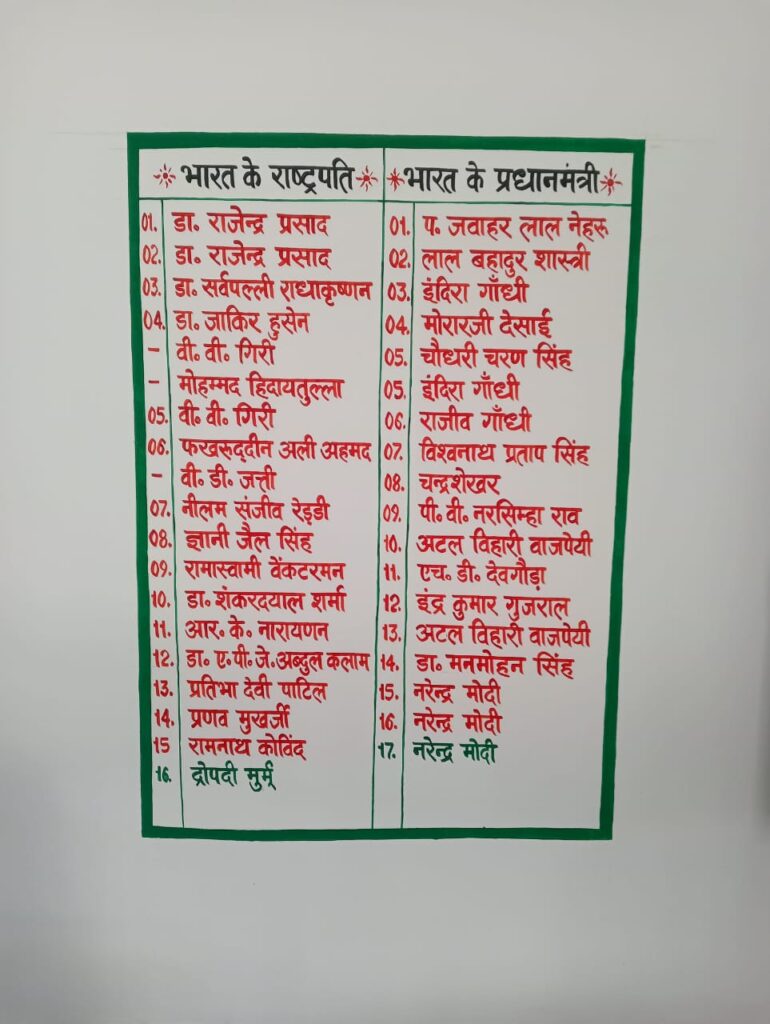 भारत के राष्ट्रपति
01. डा. राजेन्द्र प्रसाद
02. डा. राजेन्द्र प्रसाद
03. डा. सर्वपल्ली राधाकृष्णन
04. डा. जाकिर हुसेन
– वी. वी. गिरी
– मोहम्मद हिदायतुल्ला
05. वी. वी. गिरी
06. फखरुद्दीन अली अहमद
– वी. डी. जत्ती
07. नीलम संजीव रेड्डी
08. ज्ञानी जैल सिंह
09. रामास्वामी वेंकटरमन
10. डा. शंकरदयाल शर्मा
11. आर. के. नारायणन
12. डा. ए. पी. जे. अब्दुल कलाम
13. प्रतिभा देवी पाटिल
14. प्रणव मुखर्जी
15 रामनाथ कोविंद
16. द्रोपदी मुर्मू
भारत के प्रधानमंत्री
01. प. जवाहर लाल नेहरू
02. लाल बहादुर शास्त्री
03. इंदिरा गाँधी
04. मोरारजी देसाई
05. चौधरी चरण सिंह
05. इंदिरा गाँधी
06. राजीव गाँधी
07. विश्वनाथ प्रताप सिंह
08. चन्द्रशेखर
09. पी. वी. नरसिम्हा राव
10. अटल विहारी वाजपेयी
11. एच. डी. देवगौड़ा
12. इंद्र कुमार गुजराल
13. अटल विहारी वाजपेयी
14. डा. मनमोहन सिंह
15. नरेन्द्र मोदी
16. नरेन्द्र मोदी
17. नरेन्द्र मोदी